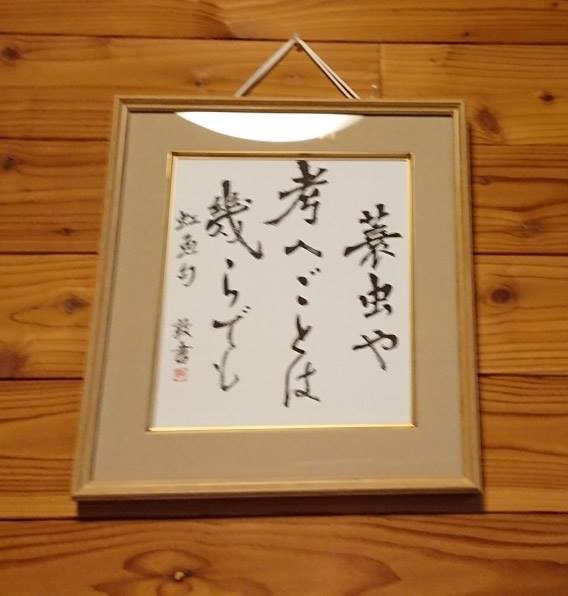 蓑虫や
考へごとは
幾らでも
虹魚句 敬書